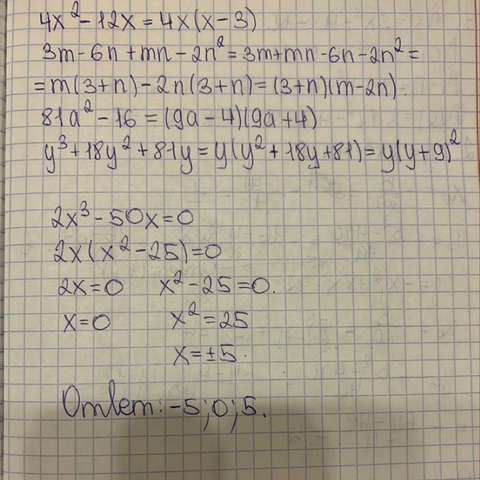 4x² - 12x = 4x(x - 3)
3m - 6n + mn - 2n² = 3m + mn - 6n - 2n² =
= m(3 + n) - 2n(3 + n) = (3 + n)(m - 2n)
81a² - 16 = (9a - 4)(9a + 4)
y³ + 18y² + 81y = y(y² + 18y + 81) = y(y + 9)²
2x³ - 50x = 0
2x(x² - 25) = 0
2x = 0 x² - 25 = 0.
x = 0 x² = 25
x = ±5.
Ответ: -5; 0; 5.